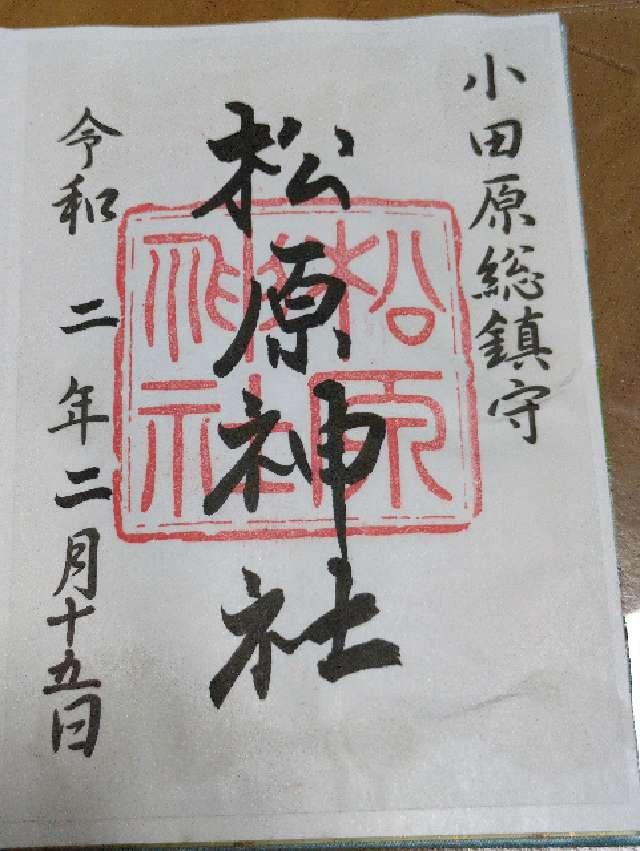 小田原総鎮守
松原神社
松原神社
令和二年二月十五日